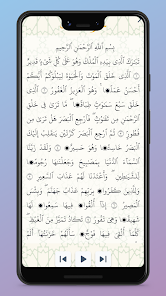 بِسْمِ ٱللَّهِ ٱلرَّحْمَٰنِ ٱلرَّحِيمِ
تَبَٰرَكَ ٱلَّذِى بِيَدِهِ ٱلْمُلْكُ وَهُوَ عَلَىٰ كُلِّ شَىْءٍ قَدِيرٌ
ٱلَّذِى خَلَقَ ٱلْمَوْتَ وَٱلْحَيَوٰةَ لِيَبْلُوَكُمْ أَيُّكُمْ
أَحْسَنُ عَمَلًا وَهُوَ ٱلْعَزِيزُ ٱلْغَفُورُ ٱلَّذِى
خَلَقَ سَبْعَ سَمَٰوَٰتٍ طِبَاقًا مَّا تَرَىٰ فِى خَلْقِ
ٱلرَّحْمَٰنِ مِن تَفَٰوُتٍ فَٱرْجِعِ ٱلْبَصَرَ هَلْ تَرَىٰ
مِن فُطُورٍ ثُمَّ ٱرْجِعِ ٱلْبَصَرَ كَرَّتَيْنِ يَنقَلِبْ
إِلَيْكَ ٱلْبَصَرُ خَاسِئًا وَهُوَ حَسِيرٌ وَلَقَدْ زَيَّنَّا
ٱلسَّمَآءَ ٱلدُّنْيَا بِمَصَٰبِيحَ وَجَعَلْنَٰهَا رُجُومًا
لِّلشَّيَٰطِينِ وَأَعْتَدْنَا لَهُمْ عَذَابَ ٱلسَّعِيرِ
وَلِلَّذِينَ كَفَرُوا۟ بِرَبِّهِمْ عَذَابُ جَهَنَّمَ
وَبِئْسَ ٱلْمَصِيرُ إِذَآ أُلْقُوا۟ فِيهَا سَمِعُوا۟ لَهَا شَهِيقًا
وَهِىَ تَفُورُ تَكَادُ تَمَيَّزُ مِنَ ٱلْغَيْظِ
كُلَّمَآ أُلْقِىَ فِيهَا فَوْجٌ سَأَلَهُمْ خَزَنَتُهَآ أَلَمْ